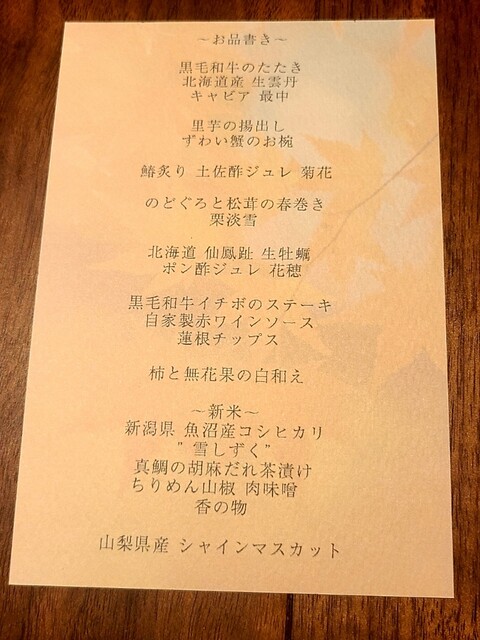 ～お品書き～
黒毛和牛のたたき
北海道産 生雲丹
キャビア 最中
里芋の揚出し
ずわい蟹のお椀
鰆炙り 土佐酢ジュレ 菊花
のどぐろと松茸の春巻き
栗淡雪
北海道 仙鳳趾 生牡蠣
ポン酢ジュレ 花穂
黒毛和牛イチボのステーキ
自家製赤ワインソース
蓮根チップス
柿と無花果の白和え
～新米～
新潟県 魚沼産コシヒカリ
"雪しずく"
真鯛の胡麻だれ茶漬け
ちりめん山椒 肉味噌
香の物
山梨県産 シャインマスカット